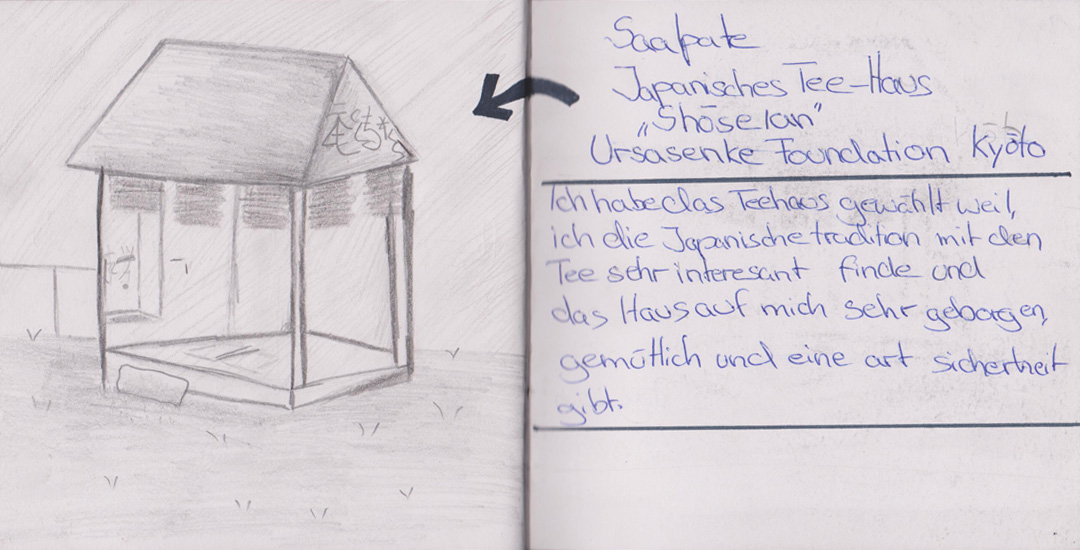 Saalpate
Japanisches Tee-Haus
„Shōseian"
Ursasenke Foundation Kyōto
Ich habe das Teehaus gewählt weil,
ich die Japanische tradition mit den
Tee sehr interesant finde und
das Haus auf mich sehr geborgen,
gemütlich und eine art sicherheit
gibt.